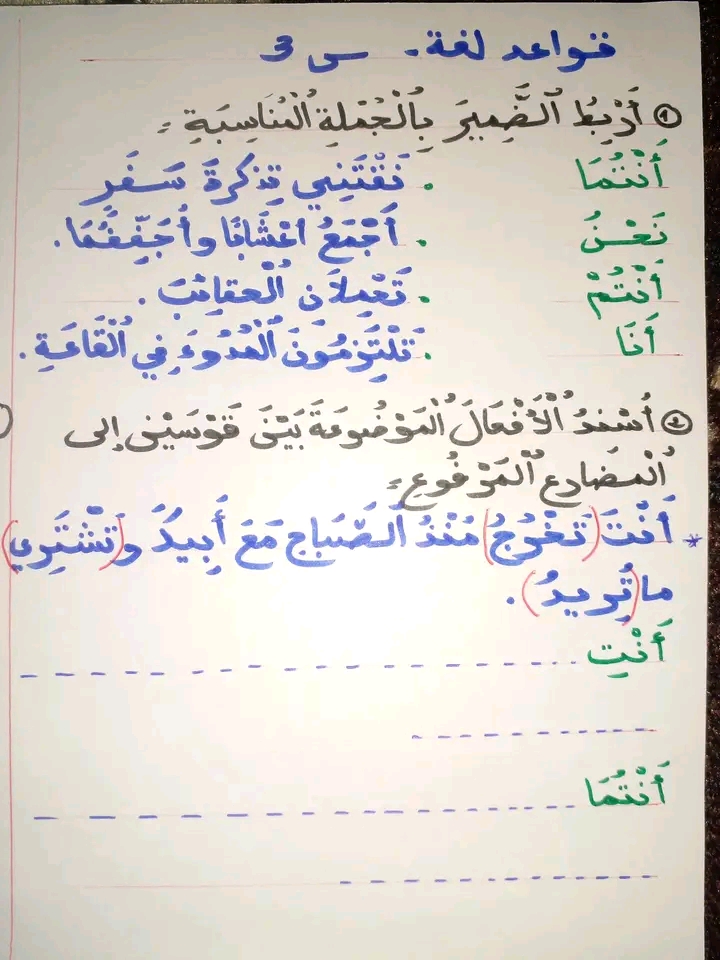 قواعد لغة. س 3
① أَرْبِطُ الضَّمِيرَ بِالْجُمْلَةِ الْمُنَاسِبَةِ :
أَنْتُمَا . نَقْتَنِي تَذْكِرَةَ سَفَرٍ
نَحْنُ . أَجْمَعُ أعْشَابًا وأُجَفِّفُهَا.
أَنْتُمْ . تَحْمِلَانِ الْحقائِبَ .
أَنَا . تَلْتَزِمُونَ الْهُدُوءَ فِي الْقَاعَةِ .
② أُسْنِدُ الْأَفْعَالَ الْمَوْضُوعَةَ بَيْنَ قَوْسَيْنِ إلى
الْمضَارِعِ الْمَرْفُوعِ :
* أَنْتَ (تَخْرُجُ) مُنْذُ الصَّبَاحِ مَعَ أَبِيكَ و(تَشْتَرِي)
ما (تُرِيدُ) .
أَنْتِ
أَنْتُمَا